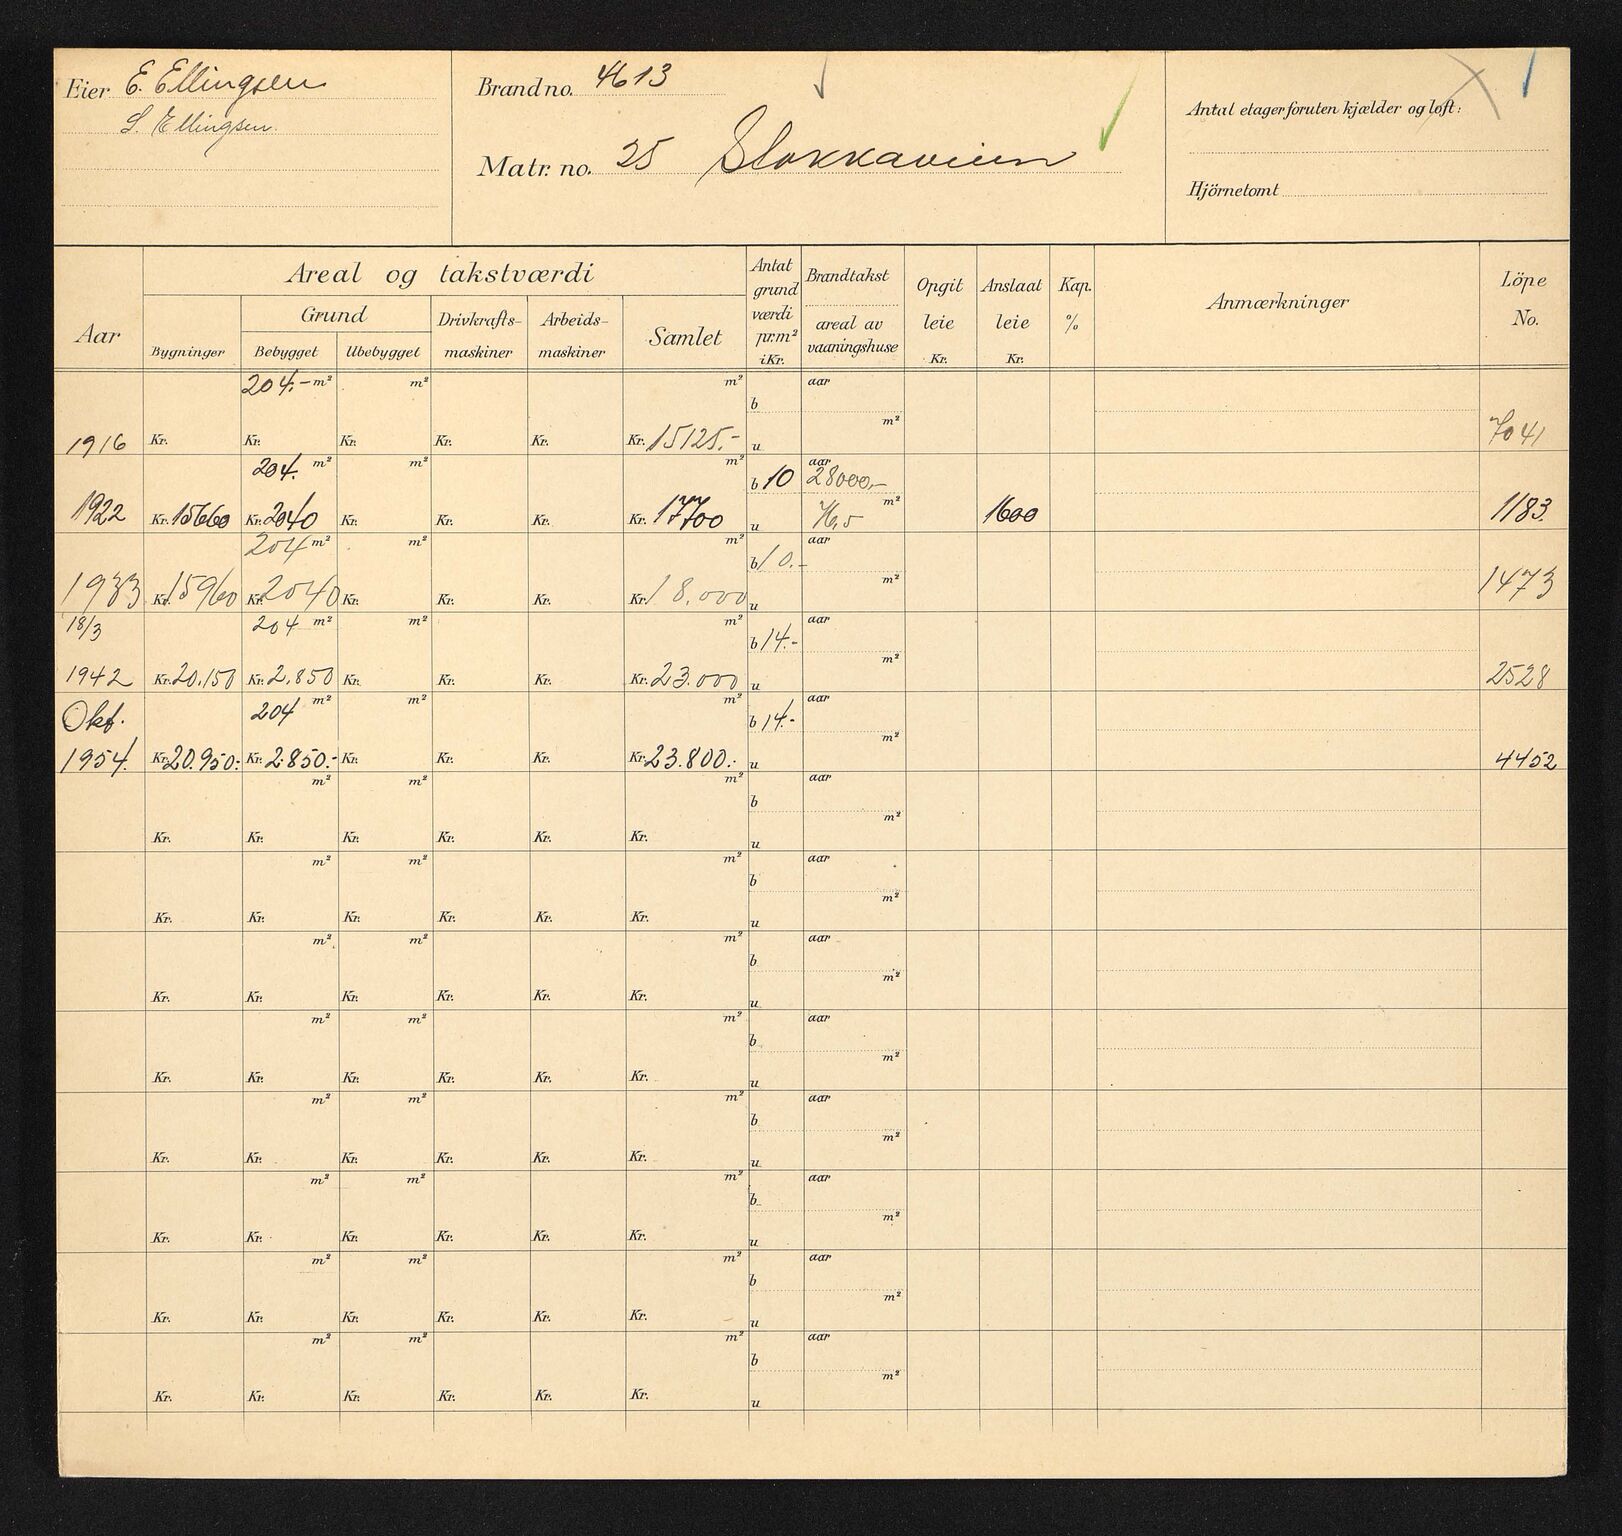 Eier E. Ellingsen
S. Ellingsen.
Brand no. 4613
Matr. no. 25 Stokkaveien
Antal etager foruten kjælder og loft:
Hjörnetomt
Aar
Areal og takstværdi
Grund
Bygninger
Bebygget
Ubebygget
Drivkrafts-
maskiner
Arbeids-
maskiner
Samlet
Antat
grund
værdi
pr. m²
i Kr.
Brandtakst
areal av
vaaningshuse
Opgit
leie
Kr.
Anslaat
leie
Kr.
Kap.
%
Anmærkninger
Löpe
No.
204.- m² m² m² aar
b
m²
1916 Kr. Kr. Kr. Kr. Kr. Kr. 15125.- u 7041
204. m² m² m² aar
b 10 28000,-
m²
1922 Kr. 15660 Kr. 2040 Kr. Kr. Kr. Kr. 17700 u 76,5 1600 1183.
204 m² m² m² aar
b 10.-
m²
1933 Kr. 15960 Kr. 2040 Kr. Kr. Kr. Kr. 18.000 u 1473
18/3 204 m² m² m² aar
b 14.-
m²
1942 Kr. 20.150 Kr. 2.850 Kr. Kr. Kr. Kr. 23.000 u 2528
Okt. 204 m² m² m² aar
b 14.-
m²
1954. Kr. 20.950.- Kr. 2.850.- Kr. Kr. Kr. Kr. 23.800.- u 4452
m² m² m² aar
b
m²
Kr. Kr. Kr. Kr. Kr. Kr. u
m² m² m² aar
b
m²
Kr. Kr. Kr. Kr. Kr. Kr. u
m² m² m² aar
b
m²
Kr. Kr. Kr. Kr. Kr. Kr. u
m² m² m² aar
b
m²
Kr. Kr. Kr. Kr. Kr. Kr. u
m² m² m² aar
b
m²
Kr. Kr. Kr. Kr. Kr. Kr. u
m² m² m² aar
b
m²
Kr. Kr. Kr. Kr. Kr. Kr. u
m² m² m² aar
b
m²
Kr. Kr. Kr. Kr. Kr. Kr. u
m² m² m² aar
b
m²
Kr. Kr. Kr. Kr. Kr. Kr. u